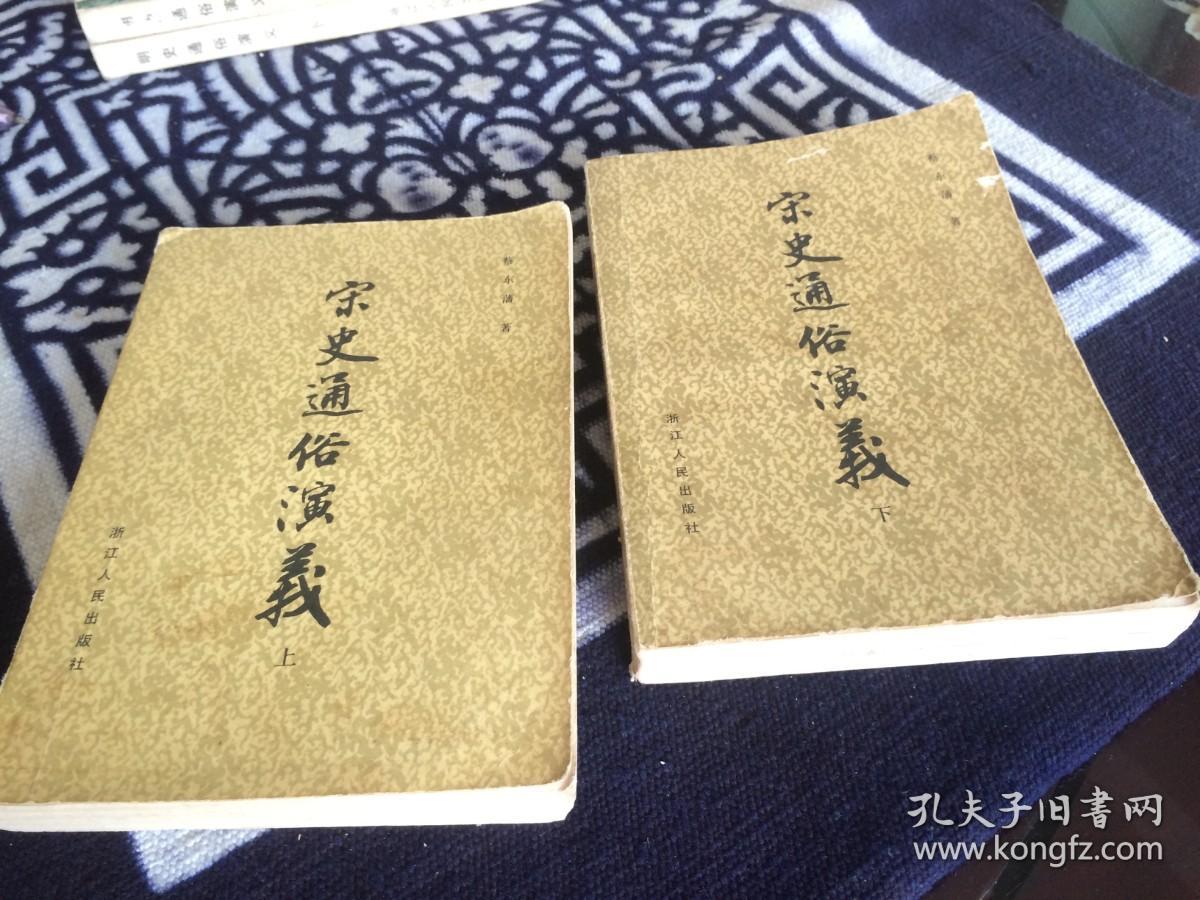 通俗演义
明史通俗演义
蔡东藩 著
宋史通俗演義
上
浙江人民出版社
蔡东藩 著
宋史通俗演義
下
浙江人民出版社
孔夫子旧书网
www.kongfz.com